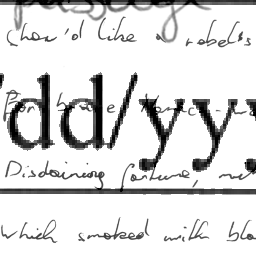 passage
Show'd like a rebel's
/dd/yyy
For brave Mac
Disdaining fortune,
which smoked with blo